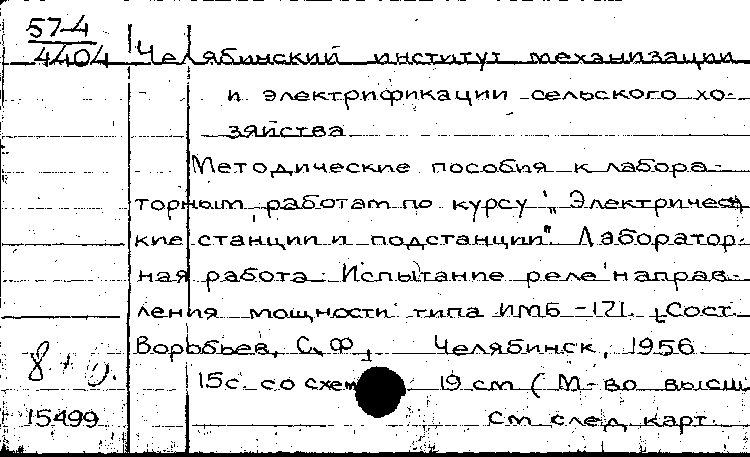 57-4
4404
Челябинский институт механизации
и электрификации сельского хо-
зяйства
Методические пособия к лабора-
торным работам по курсу „Электричес
кие станции и подстанции". Лаборатор-
ная работа: Испытание реле направ-
ления мощности типа ИМБ-171. [Сост.
Воробьев, С.Ф.] Челябинск, 1956.
15с. со схем 19 см (М-во высш
15499
см след. карт.